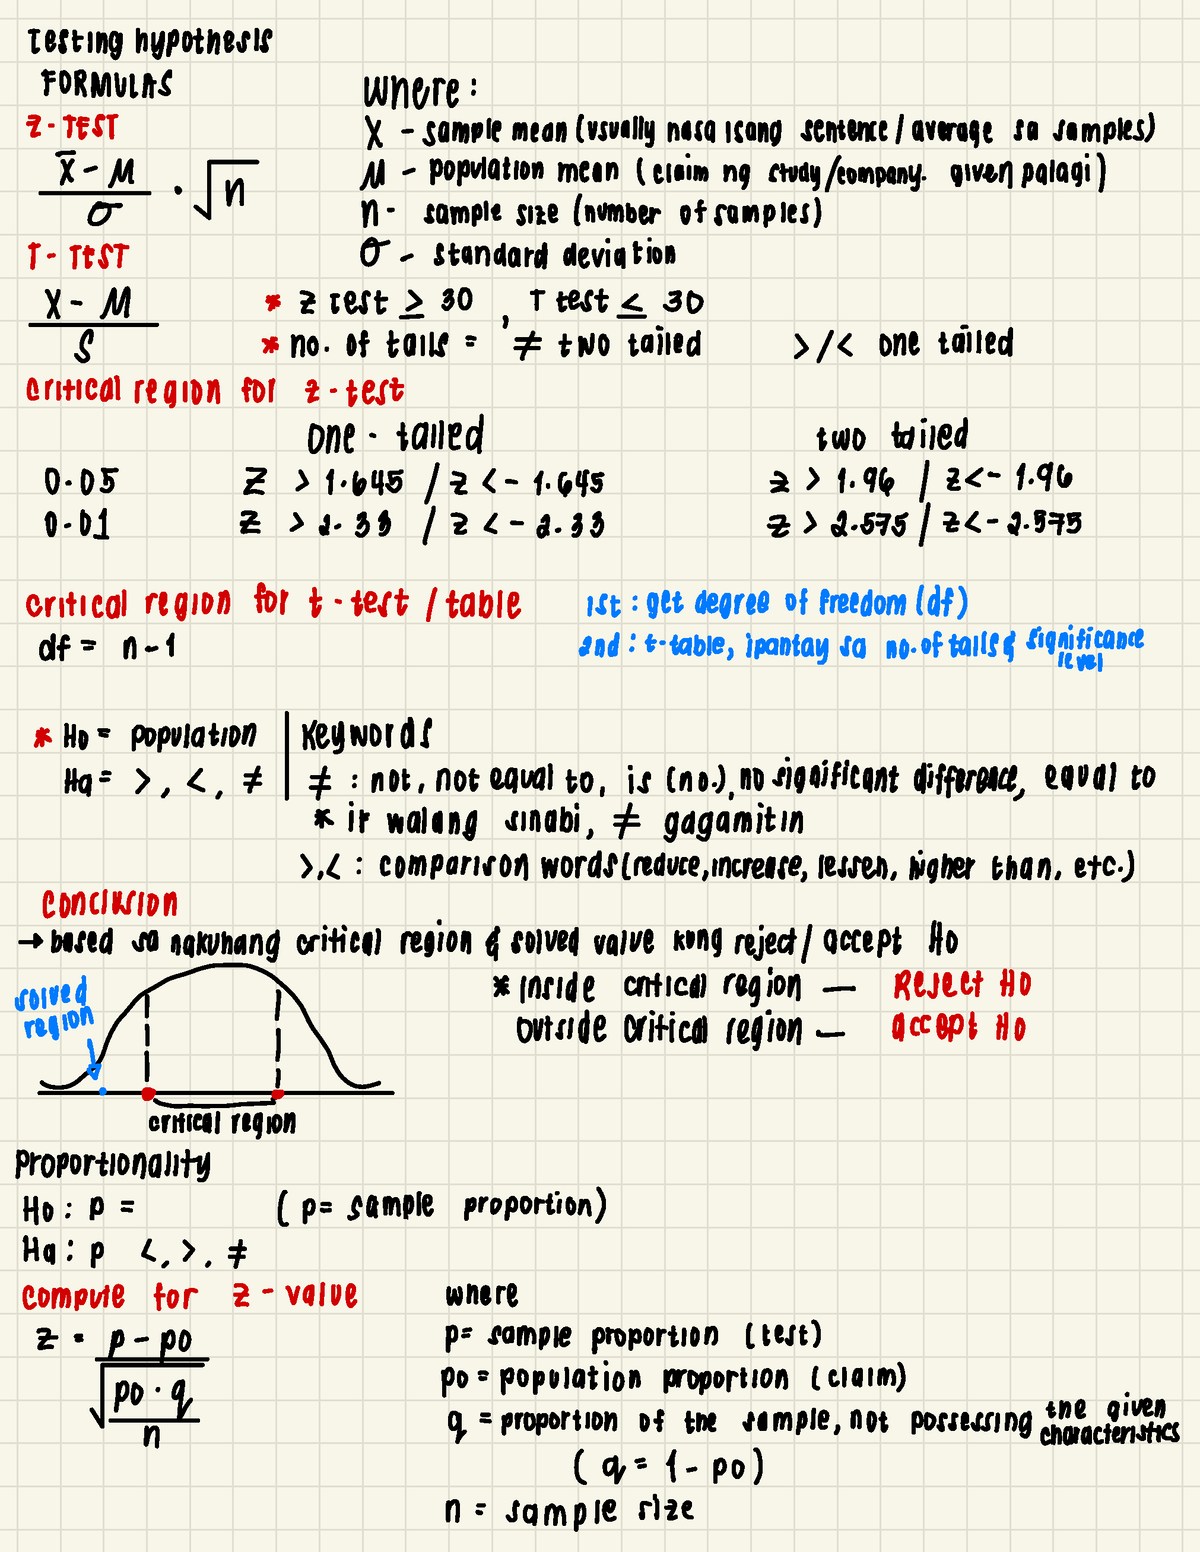 Testing hypothesis
FORMULAS
Where:
Z-TEST
X̄ - M / σ · √n
X - sample mean (usually nasa isang sentence / average sa samples)
M - population mean (claim ng study/company. given palagi)
n - sample size (number of samples)
σ - standard deviation
T-TEST
X - M / S
* Z test ≥ 30, T test ≤ 30
* no. of tails = ≠ two tailed >/< one tailed
critical region for z-test
one-tailed two tailed
0.05 Z > 1.645 / Z < - 1.645 Z > 1.96 / Z < - 1.96
0.01 Z > 2.33 / Z < - 2.33 Z > 2.575 / Z < - 2.575
critical region for t-test / table
df = n-1
1st: get degree of freedom (df)
2nd: t-table, ipantay sa no. of tails & significance level
* Ho = population
Ha = >, <, ≠
Keywords
≠ : not, not equal to, is (no.), no significant difference, equal to
* if walang sinabi, ≠ gagamitin
>,< : comparison words (reduce, increase, lessen, higher than, etc.)
Conclusion
→ based sa nakuhang critical region & solved value kung reject/ accept Ho
* inside critical region — Reject Ho
outside critical region — accept Ho
solved region
critical region
Proportionality
Ho: p = (p= sample proportion)
Ha: p <, >, ≠
compute for z-value
z = p - po / √ po · q / n
where
p= sample proportion (test)
po = population proportion (claim)
q = proportion of the sample, not possessing the given characteristics
(q = 1 - po)
n = sample size